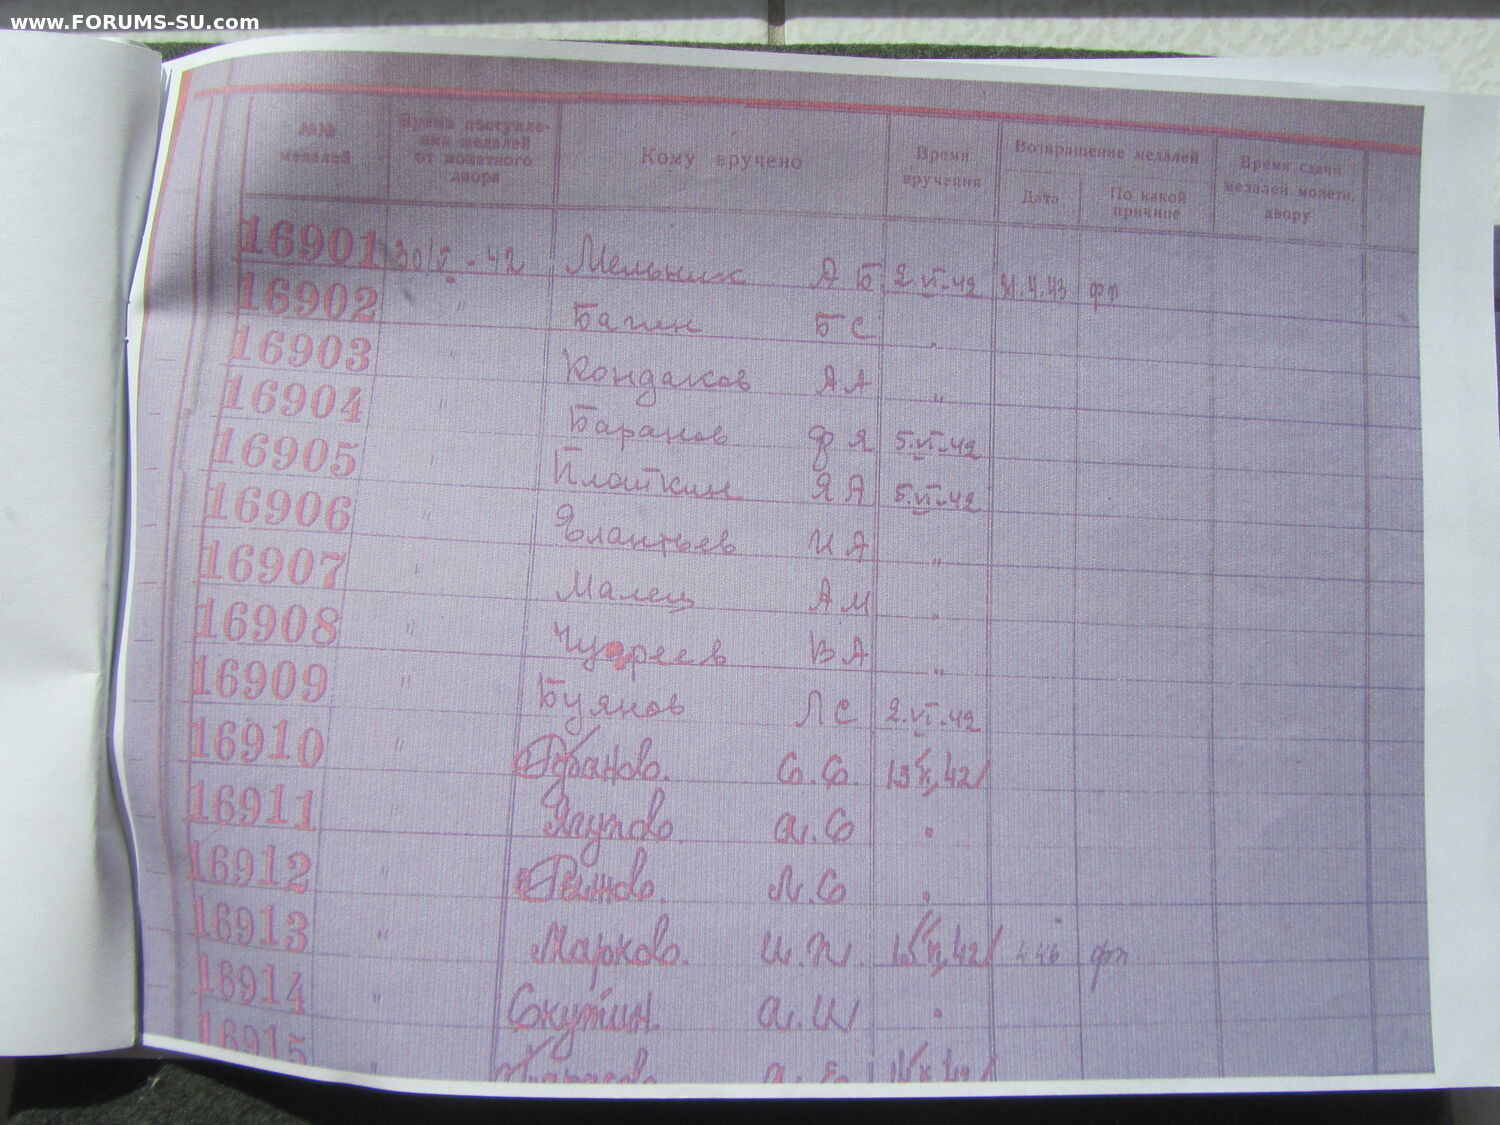 www.FORUMS-SU.com
№№ медалей
Время поступления медалей от монетного двора
Кому вручено
Время вручения
Возвращение медалей
Дата
По какой причине
Время сдачи медалей монетн. двору
16901 30/V - 42 Мельник А Б 2.VI-42 4.43 фп
16902 " Багин Б С "
16903 " Кондаков А А "
16904 " Баранов Ф Я 5.VI-42
16905 " Платкин Я А 5.VI-42
16906 " Елантьев И А "
16907 " Малец А М "
16908 " В А "
16909 " Буянов Л С 2.VI-42
16910 " С. С.
16911 " Якупов А. С "
16912 " Л. С "
16913 " Марков. И. П. фп
16914 " Скутин. А. И "
16915 "